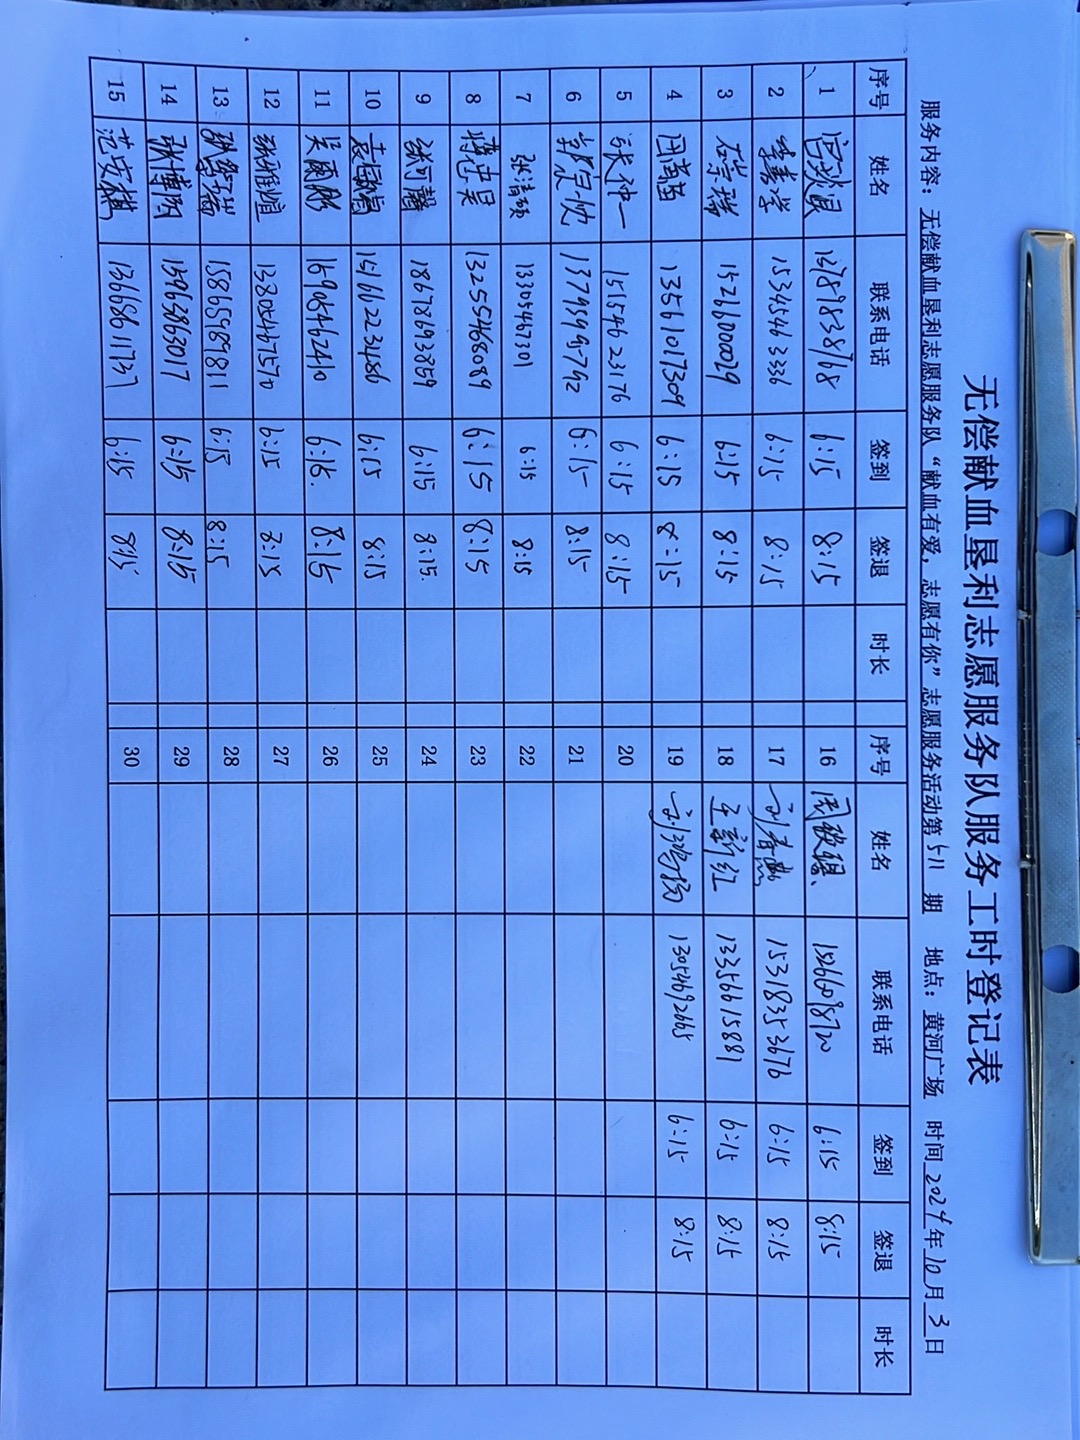 无偿献血垦利志愿服务队服务工时登记表
服务内容：无偿献血垦利志愿服务队“献血有爱，志愿有你”志愿服务活动第 511 期 地点：黄河广场 时间 2024年 10月 3日
序号 姓名 联系电话 签到 签退 时长 序号 姓名 联系电话 签到 签退 时长
1 6:15 8:15 16 6:15 8:15
2 15345463336 6:15 8:15 17 刘春燕 15318353676 6:15 8:15
3 15266000029 6:15 8:15 18 王新红 13356615881 6:15 8:15
4 13561017309 6:15 8:15 19 13054692665 6:15 8:15
5 张冲一 15154623176 6:15 8:15 20
6 6:15 8:15 21
7 张清硕 13305467301 6:15 8:15 22
8 蒋忠昊 13255468089 6:15 8:15 23
9 张可馨 18678693859 6:15 8:15 24
10 15166223486 6:15 8:15 25
11 吴雨彤 6:15 8:15 26
12 张雅煊 13805467570 6:15 8:15 27
13 15865989811 6:15 8:15 28
14 张博阳 15963863017 6:15 8:15 29
15 范安棋 13668611737 6:15 8:15 30